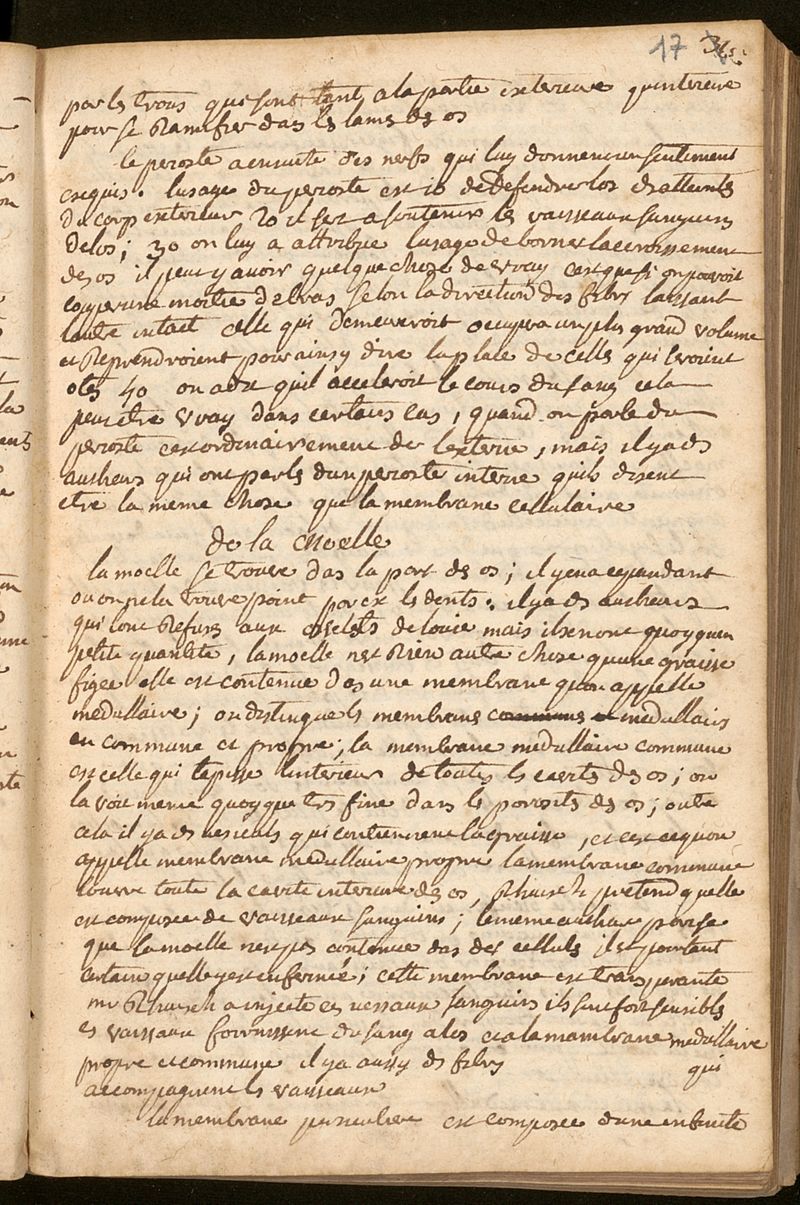 17 34
par les trous qui sont tant a la partie exterieure quinterieure
pour se Ramifier dans les lames des os
le perioste a ensuite des nerfs qui luy donnent un sentiment
exquis. lusage du perioste est 1o de deffendre los des atteintes
du corp exterieur 2o il sert a soutenir les vaisseaux sanguins
de los; 3o on luy a attribue lusage de borner laccroissement
des os il peut y avoir quelque chose de vray cest que si on pouvoit
couper une moitie de bras selon la direction des fibres laissant
lautre intact celle qui demeureroit occupera un plus grand volume
et Reprendroient pour ainsy dire la place de celles qui seroient
otes 4o on a dit quil acceleroit le cours du sang cela
peut etre vray dans certains cas, quand on parle du
perioste cest ordinairement de lexterne, mais il y a des
autheurs qui ont parles dun perioste interne quils disent
etre la meme chose que la membrane cellulaire
de la Moelle
la moelle se trouve das la part des os; il y en a cependant
ou on ne la trouve point par ex les dents. il y a des autheurs
qui lont Refuses aux osselets de louie mais ils en ont quoyquen
petite quantite, la moelle nest Rien autre chose quune graisse
figee elle est contenue das une membrane quon appelle
medullaire; on distingue les membranes communes et medullaires
en commune et propre; la membrane medullaire commune
est celle qui tapisse linterieur de toutes les cavites des os; on
la voit meme quoyque tres fine dans les porosites des os; outre
cela il y a des vesicules qui contiennent la graisse, et cest ce quon
appelle membrane medullaire propre la membrane commune
couvre toute la cavite interieure des os, pretend quelle
est composee de vaisseaux sanguins; le meme autheur
que la moelle nest pas contenue das des cellules il est pourtant
certain quelle y est enfermee; cette membrane est transparente
mr a injecte ces vessaux sanguins ils sont fort sensibles
es vaissaux fournissent du sang a los et a la mambrane medullaire
propre et commune il y a aussy des fibres qui
accompagnent les vaisseaux
la membrane particuliere est composee dune enfinite